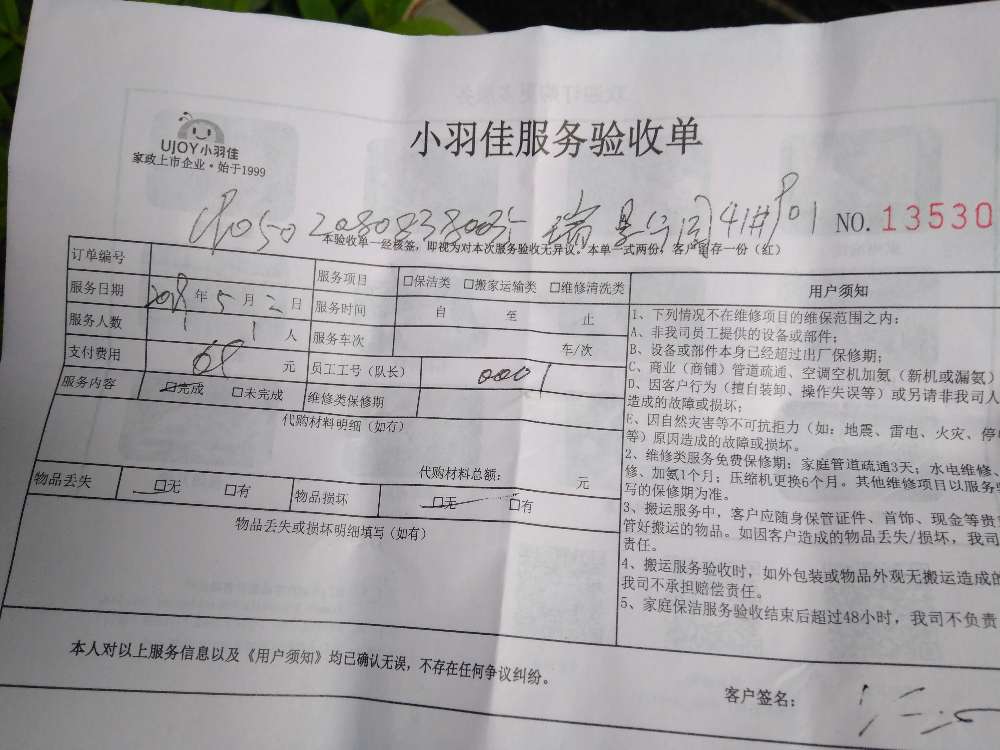 UJOY小羽佳
家政上市企业·始于1999
小羽佳服务验收单
瑞景公园41#701 NO.13530
本验收单一经核签，即视为对本次服务验收无异议。本单一式两份，客户留存一份（红）
订单编号
服务项目 □保洁类 □搬家运输类 □维修清洗类
服务日期 2018年5月2日
服务时间 自 至 止
服务人数 1 人
服务车次 车/次
支付费用 68 元
员工工号（队长） 0001
服务内容 □完成 □未完成
维修类保修期
代购材料明细（如有）
代购材料总额： 元
物品丢失 □无 □有
物品损坏 □无 □有
物品丢失或损坏明细填写（如有）
用户须知
1、下列情况不在维修项目的维保范围之内：
A、非我司员工提供的设备或部件；
B、设备或部件本身已经超过出厂保修期；
C、商业（商铺）管道疏通、空调空机加氨（新机或漏氨）
D、因客户行为（擅自装卸、操作失误等）或另请非我司人
造成的故障或损坏；
E、因自然灾害等不可抗拒力（如：地震、雷电、火灾、停
等）原因造成的故障或损坏。
2、维修类服务免费保修期：家庭管道疏通3天；水电维修、
修、加氨1个月；压缩机更换6个月。其他维修项目以服务
写的保修期为准。
3、搬运服务中，客户应随身保管证件、首饰、现金等贵
管好搬运的物品。如因客户造成的物品丢失/损坏，我司
责任。
4、搬运服务验收时，如外包装或物品外观无搬运造成的
我司不承担赔偿责任。
5、家庭保洁服务验收结束后超过48小时，我司不负责
本人对以上服务信息以及《用户须知》均已确认无误，不存在任何争议纠纷。
客户签名：